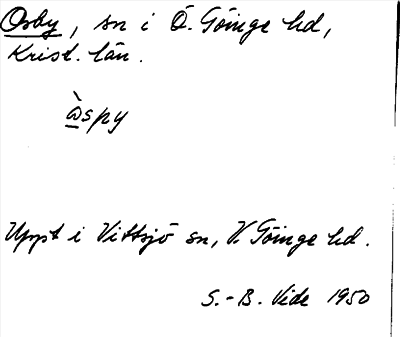 Osby, sn i Ö. Göinge hd,
Krist. län.
ὰspy
Uppt i Vittsjö sn, V. Göinge hd.
S.-B. Vide 1950